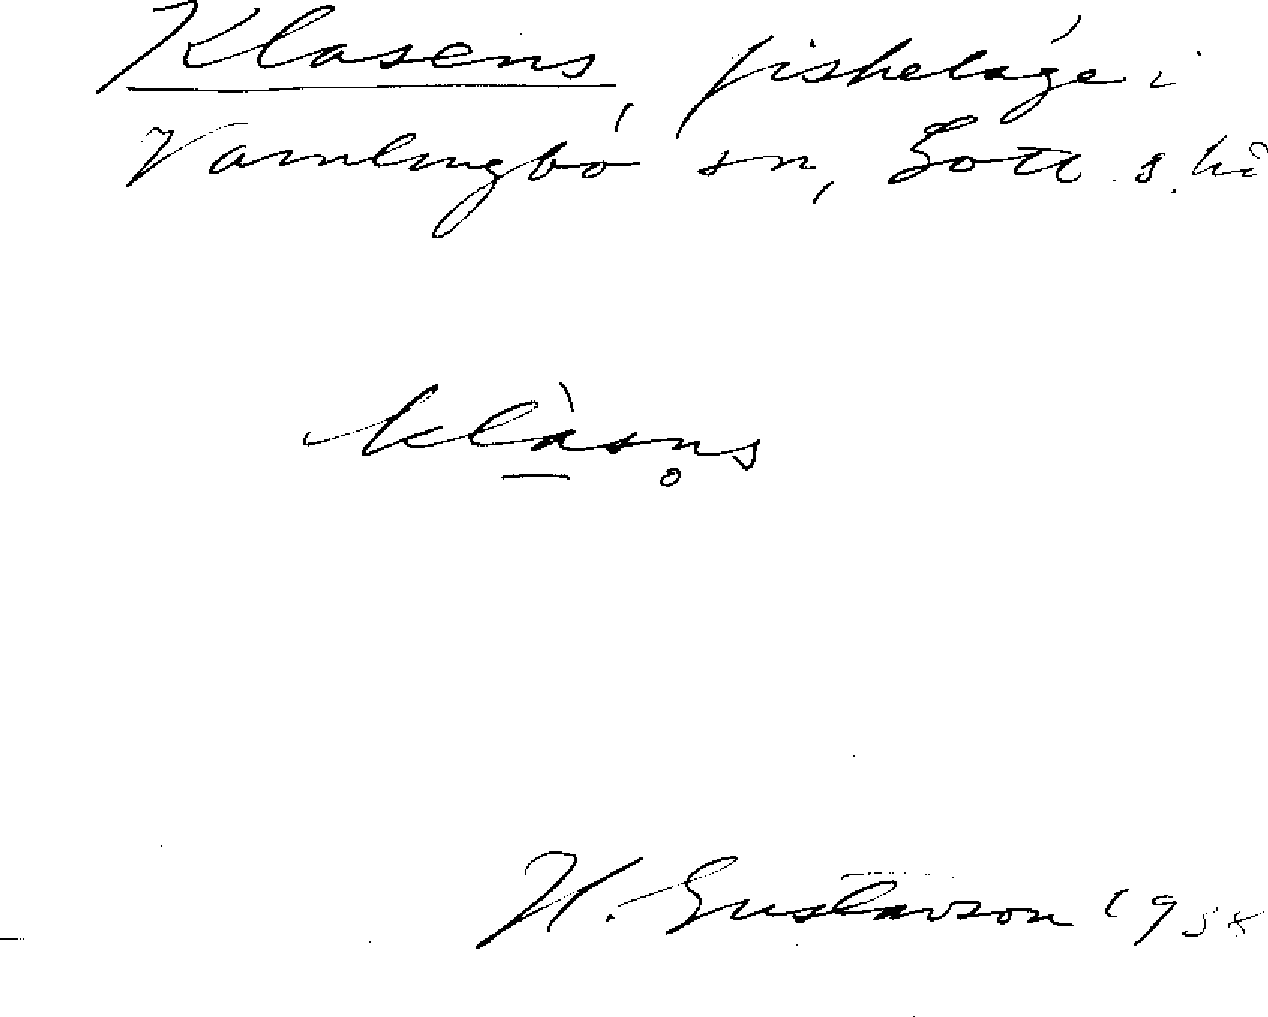 Klasens fiskeläge i
Vamlingbo sn, Gotl s. hd
klàsn̥s
H. Gustavson 1958